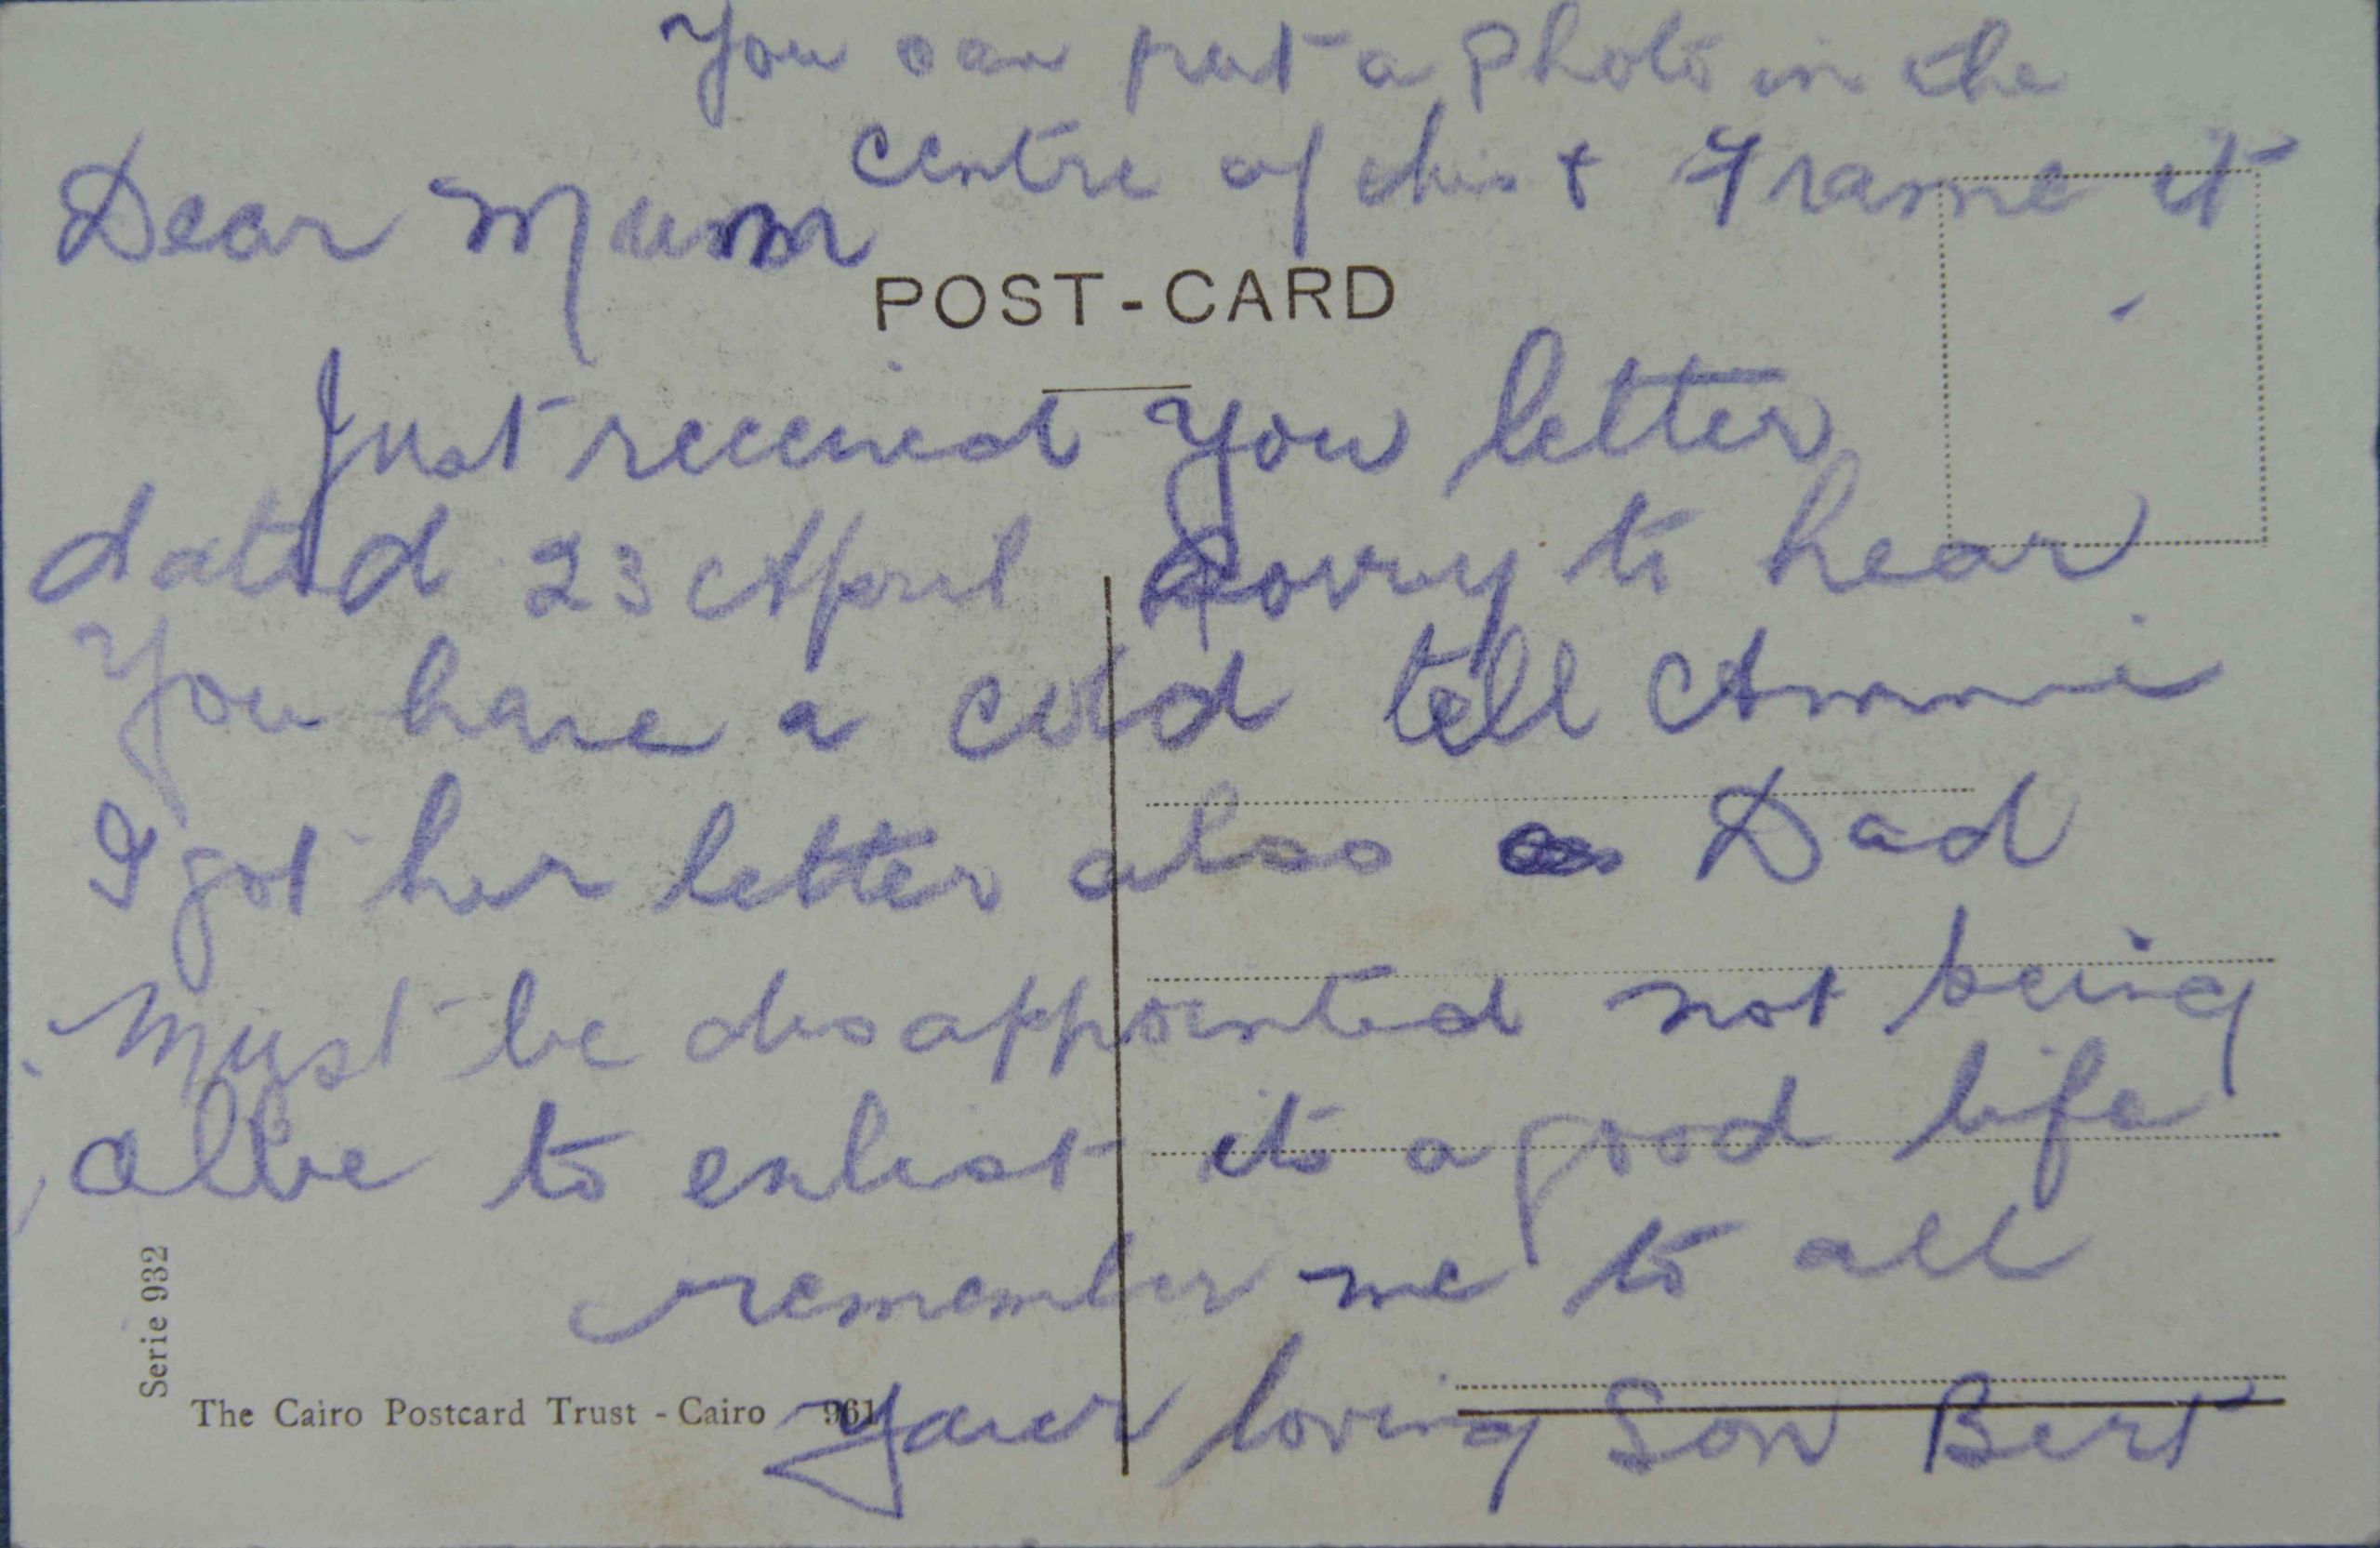 You can put a Photo in the
centre of this & Frame it
Dear Mum
POST-CARD
Just received you letter
dated 23 April Sorry to hear
You have a cold tell Annie
I got her letter also Dad
Must be disappointed not being
albe to enlist its a good life
remember me to all
Your loving Son Bert
Serie 932
The Cairo Postcard Trust - Cairo 961